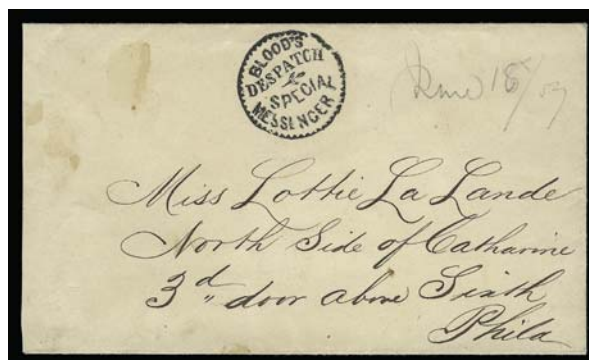 BLOOD'S
DESPATCH
&
SPECIAL
MESSENGER
June 18/59
Miss Lottie La Lande
North Side of Catharine
3d door above Sixth
Phila